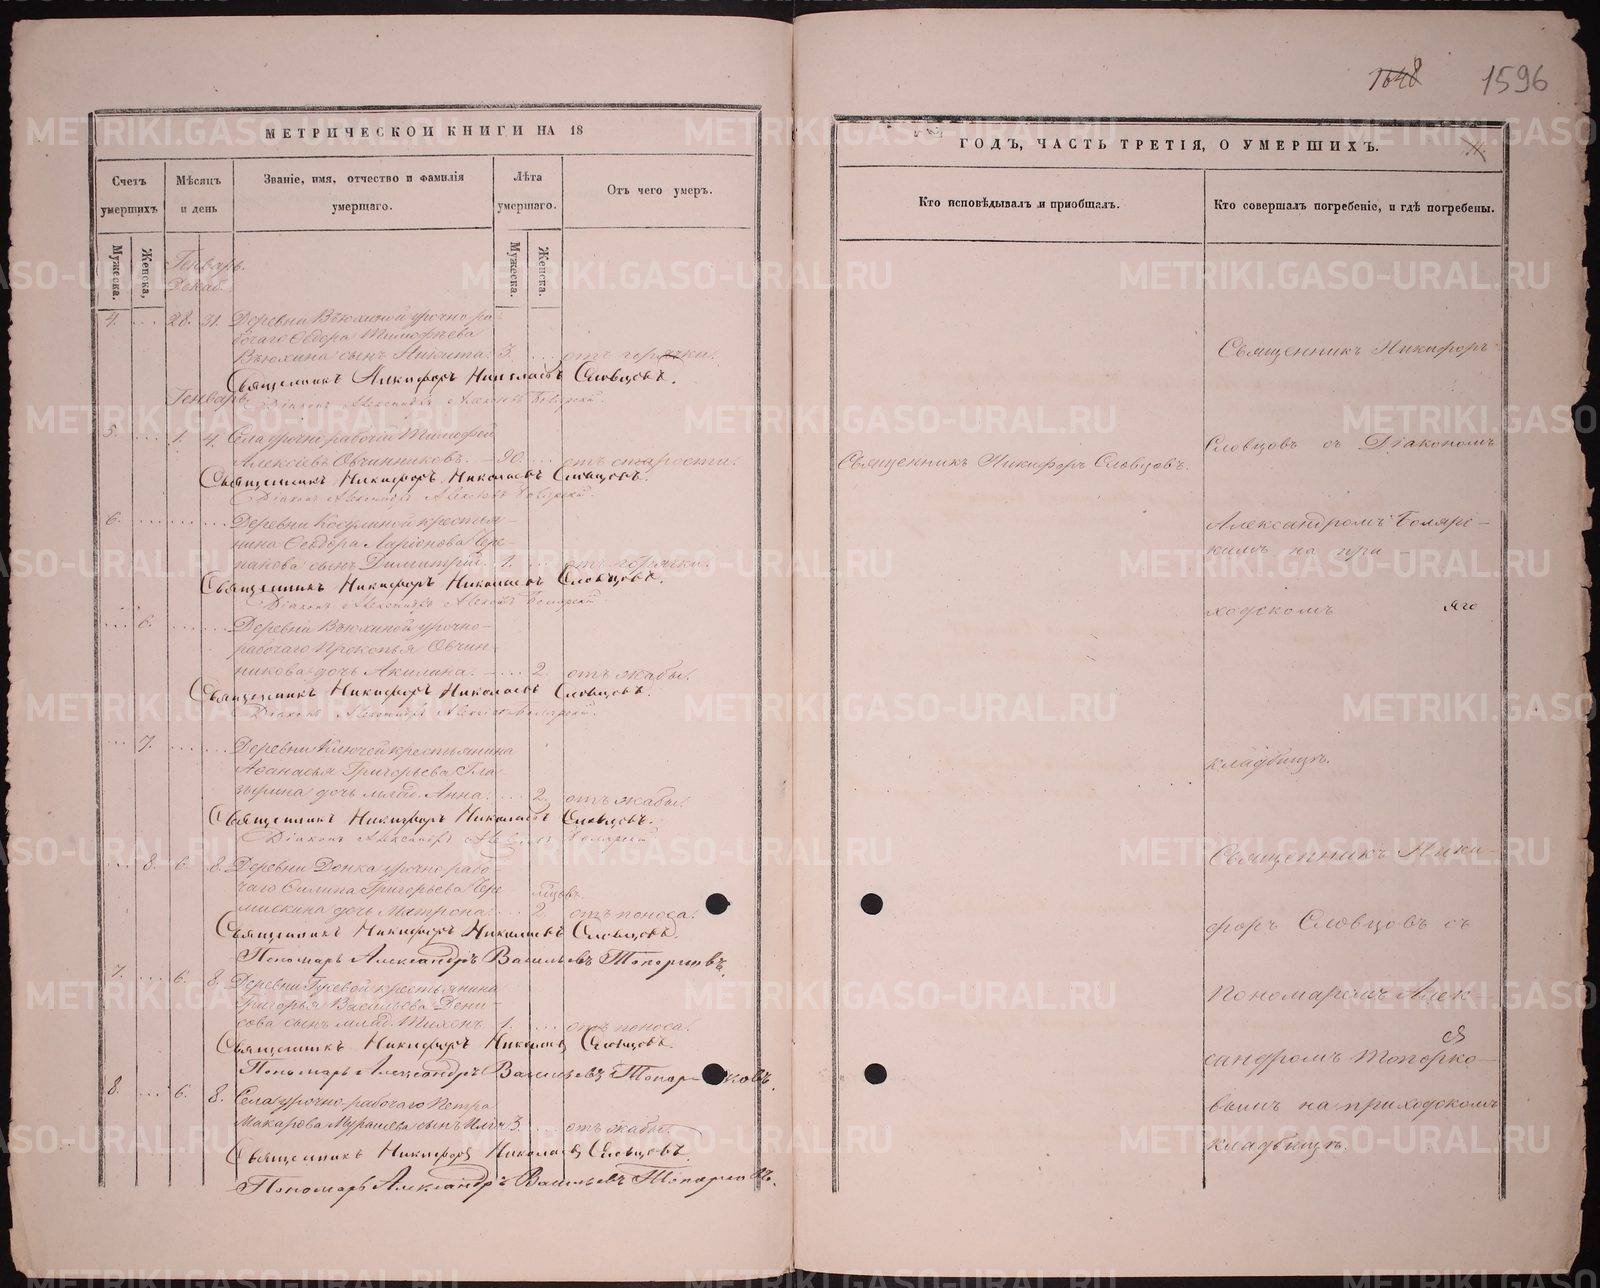 1648 1596
МЕТРИЧЕСКОЙ КНИГИ НА 18
Счетъ умершихъ
Мѣсяцъ и день
Званіе, имя, отчество и фамилія умершаго.
Лѣта умершаго.
Отъ чего умеръ.
Мужеска.
Женска,
Мужеска.
Женска.
Генварь.
Декаб.
4. 28. 31. Деревни Вьюхиной урочно ра-
бочаго Ѳедора Тимофѣева
Вьюхина сынъ Никита. 3. отъ горячки.
Священникъ Никифоръ Николаевъ Словцовъ.
Діаконъ Александръ Боляркій.
Генварь.
5. 1. 4. Села урочно рабочій Тимофей
Алексѣевъ Овчинниковъ. 90. отъ старости.
Священникъ Никифоръ Николаевъ Словцовъ.
Діаконъ Александръ
6. Деревни Косулиной крестья-
нина Ѳеодора Ларіонова Чере-
панова сынъ Димитрій. 1. отъ горячки.
Священникъ Никифоръ Николаевъ Словцовъ.
Діаконъ Александръ
6. Деревни Вьюхиной урочно-
рабочаго Прокопья Овчин-
никова дочь Акилина. 2. отъ жабы.
Священникъ Никифоръ Николаевъ Словцовъ.
Діаконъ Александръ
7. Деревни Ключей крестьянина
Аѳанасья Григорьева Гла-
зырина дочь млад. Анна. 2. отъ жабы.
Священникъ Никифоръ Николаевъ Словцовъ.
Діаконъ Александръ
8. 6. 8. Деревни Донка урочно рабо-
чаго Филипа Григорьева Чере
мискина дочь Матрона. 2. отъ поноса.
Священникъ Никифоръ Николаевъ Словцовъ.
Пономарь Александръ Васильевъ Топорковъ.
7. 6. 8. Деревни Гусевой крестьянина
Григорья Васильева Дени-
сова сынъ млад. Тихонъ 1. отъ поноса.
Священникъ Никифоръ Николаевъ Словцовъ.
Пономарь Александръ Васильевъ Топорковъ.
8. 6. 8. Села урочно-рабочаго Петра
Макарова Мурашева сынъ Илія 3. отъ жабы.
Священникъ Никифоръ Николаевъ Словцовъ.
Пономарь Александръ Васильевъ Топорковъ.
ГОДЪ, ЧАСТЬ ТРЕТІЯ, О УМЕРШИХЪ.
Кто исповѣдывалъ и пріобщалъ.
Кто совершалъ погребеніе, и гдѣ погребены.
Священникъ Никифоръ Словцовъ.
Священникъ Никифоръ
Словцовъ съ Діакономъ
Александромъ Болярс-
кимъ на при-
ходскомъ
кладбищѣ.
Священникъ Ники-
форъ Словцовъ съ
Пономаремъ Алек-
сандромъ Топорко-
вымъ на приходскомъ
кладбищѣ.
METRIKI.GASO-URAL.RU